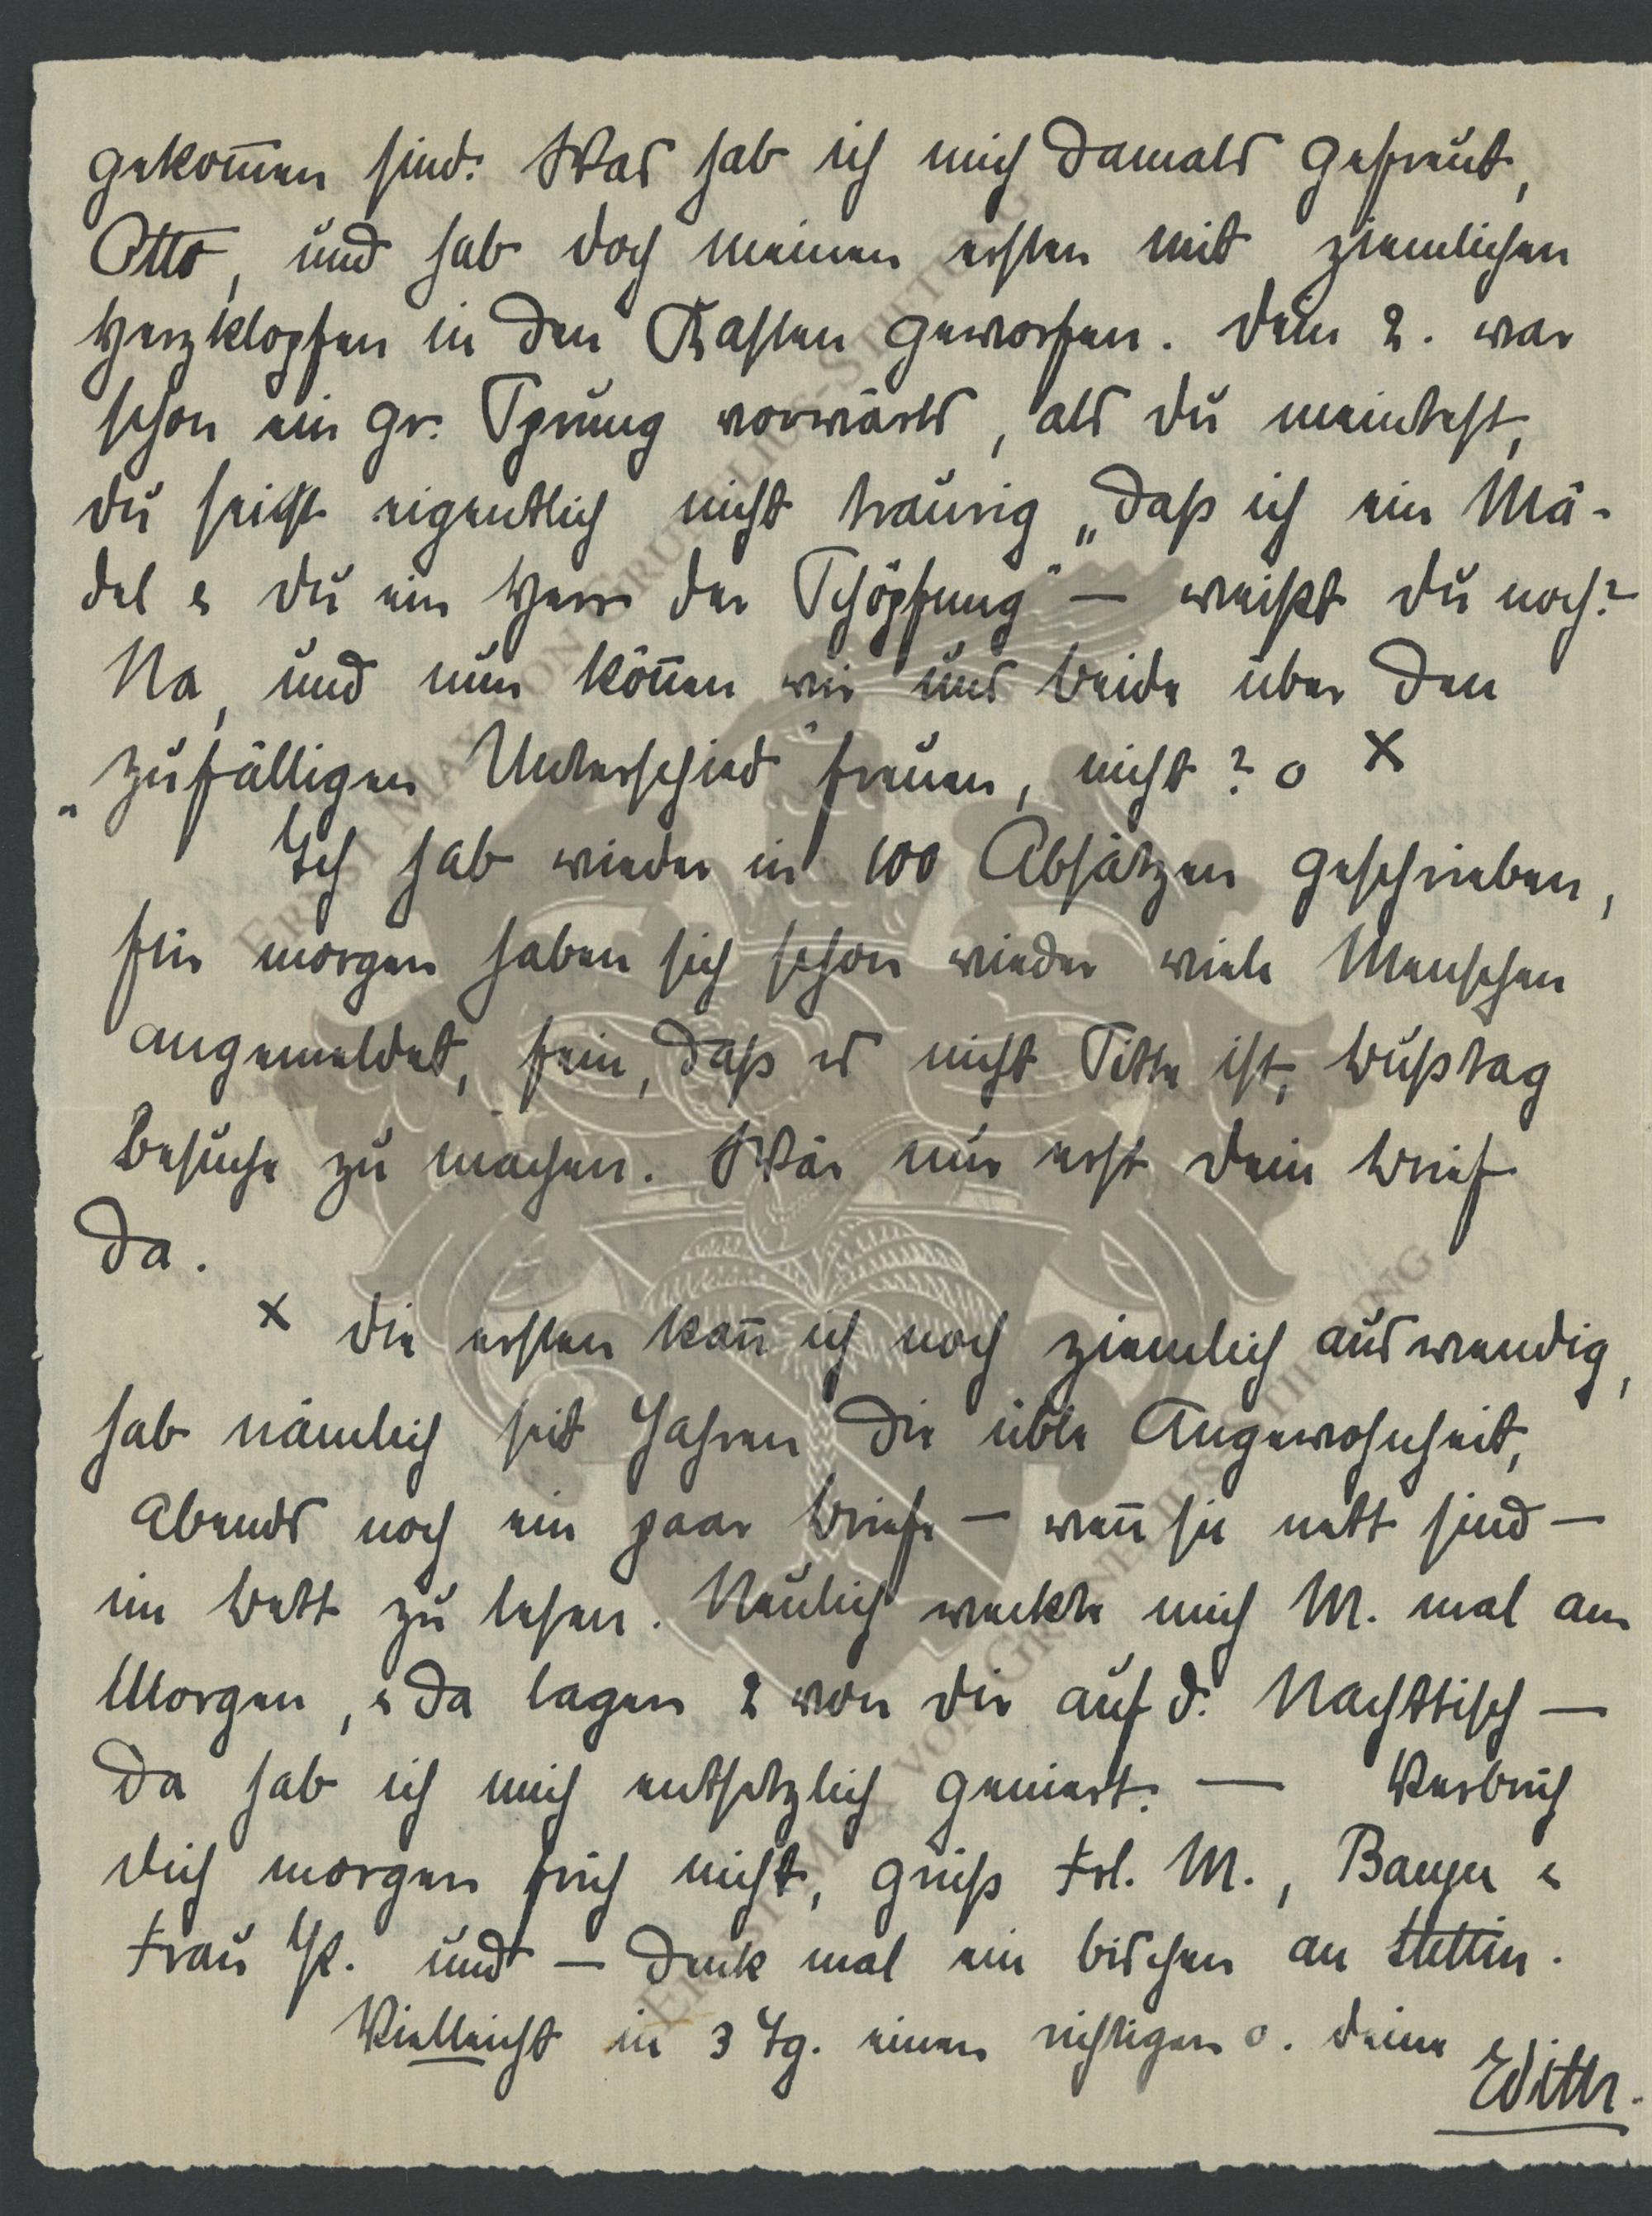 gekom̅en sind. Was hab ich mich damals gefreut,
Otto, und hab doch meinen ersten mit ziemlichen
Herzklopfen in den Kasten geworfen. Dein 2. war
schon ein gr. Sprung vorwärts, als Du meintest,
Du seist eigentlich nicht traurig „daß ich ein Mä-
del & Du ein Herr der Schöpfung“ — weißt Du noch?
Na, und nun kön̅en wir uns beide über den
„zufälligen Unterschied“ freuen, nicht? o x
Ich hab wieder in 100 Absätzen geschrieben,
für morgen haben sich schon wieder viele Menschen
angemeldet, fein, daß es nicht Sitte ist, Bußtag
Besuche zu machen. Wär nur erst Dein Brief
da.
x Die ersten kan̅ ich noch ziemlich auswendig,
hab nämlich seit Jahren die üble Angewohnheit,
Abends noch ein paar Briefe — wen̅ sie nett sind —
im Bett zu lesen. Neulich weckte mich M. mal am
Morgen, & da lagen 2 von Dir auf d. Nachttisch —
da hab ich mich entsetzlich geniert. —
dich morgen früh nicht, grüß Frl. M., &
Frau und — denk mal ein bischen an Stettin.
Vielleicht in 3 Tg. einen richtigen o. Deine
Edith.
ERNST MAX VON GRUNELIUS-STIFTUNG
ERNST MAX VON GRUNELIUS-STIFTUNG